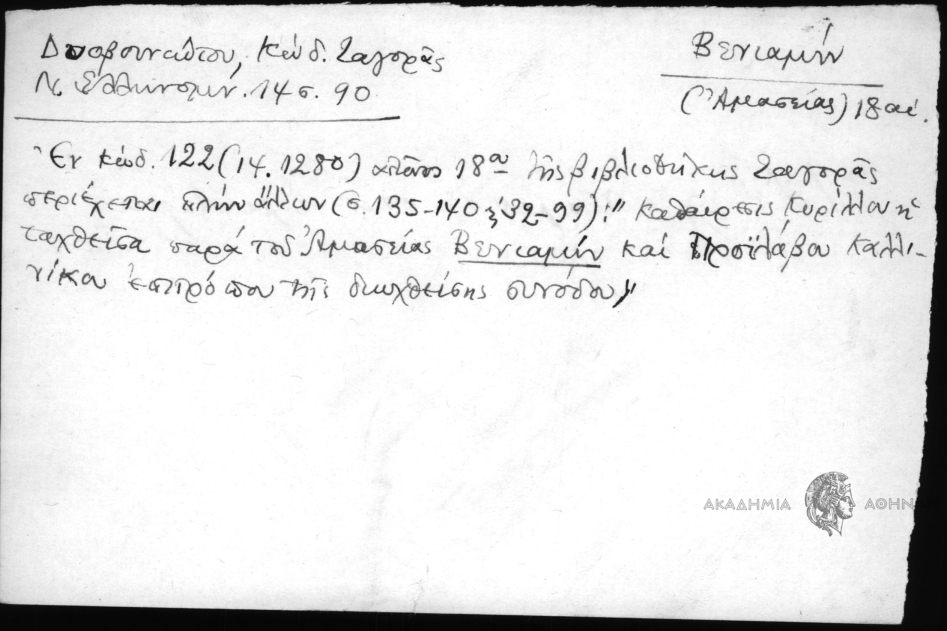 Δυοβουνιώτου, Κώδ. Ζαγορᾶς
Ν. Ἑλληνομν. 14 σ. 90
Βενιαμίν
(Ἀμασείας) 18 αἰ.
Ἐν κώδ. 122 (14.1280) 18ου τῆς βιβλιοθήκης Ζαγορᾶς
περιέχεται πλὴν ἄλλων (σ. 135-140 ἢ 92-99): " Καθαίρεσις Κυρίλλου ἡ
ταχθεῖσα παρὰ τοῦ Ἀμασείας Βενιαμίν καὶ Προϊλάβου Καλλι-
νίκου ἐπιτρόπου τῆς συνόδου"
ΑΚΑΔΗΜΙΑ ΑΘΗΝ